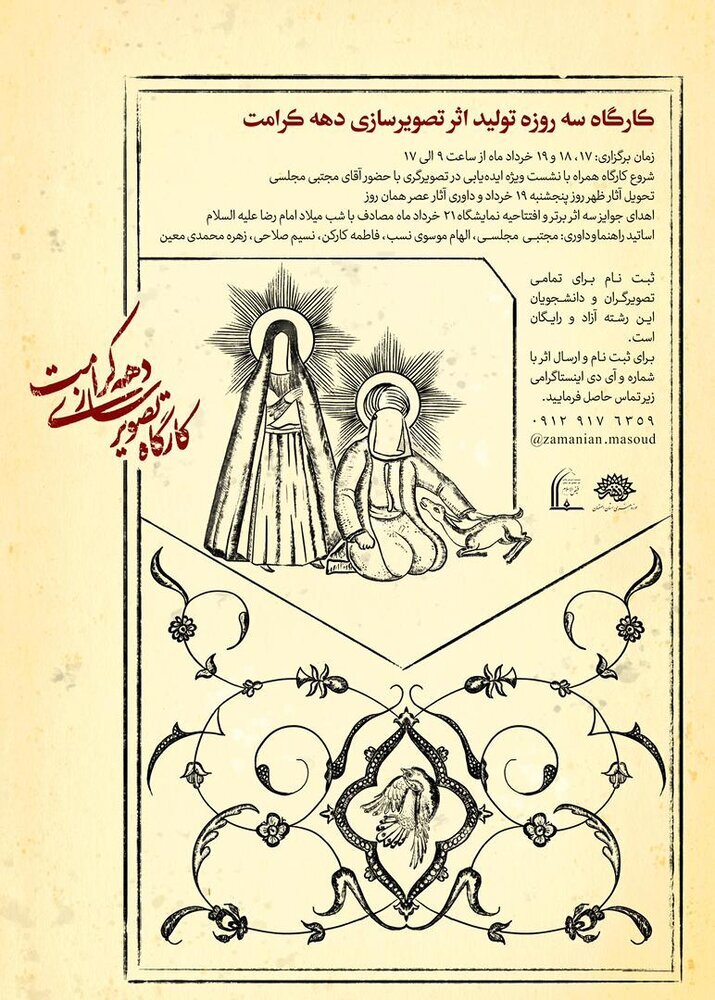 کارگاه سه روزه تولید اثر تصویرسازی دهه کرامت
زمان برگزاری: ۱۷، ۱۸ و ۱۹ خرداد ماه از ساعت ۹ الی ۱۷
شروع کارگاه همراه با نشست ویژه ایده‌یابی در تصویرگری با حضور آقای مجتبی مجلسی
تحویل آثار ظهر روز پنجشنبه ۱۹ خرداد و داوری آثار عصر همان روز
اهدای جوایز سه اثر برتر و افتتاحیه نمایشگاه ۲۱ خرداد ماه مصادف با شب میلاد امام رضا علیه السلام
اساتید راهنما و داوری: مجتبی مجلسی، الهام موسوی نسب، فاطمه کارکن، نسیم صلاحی، زهره محمدی معین
ثبت نام برای تمامی
تصویرگران و دانشجویان
این رشته آزاد و رایگان
است.
برای ثبت نام و ارسال اثر با
شماره و آی دی اینستاگرامی
زیر تماس حاصل فرمایید.
۰۹۱۲ ۹۱۷ ۶۳۵۹
@zamanian.masoud
دهه کرامت
کارگاه تصویرسازی